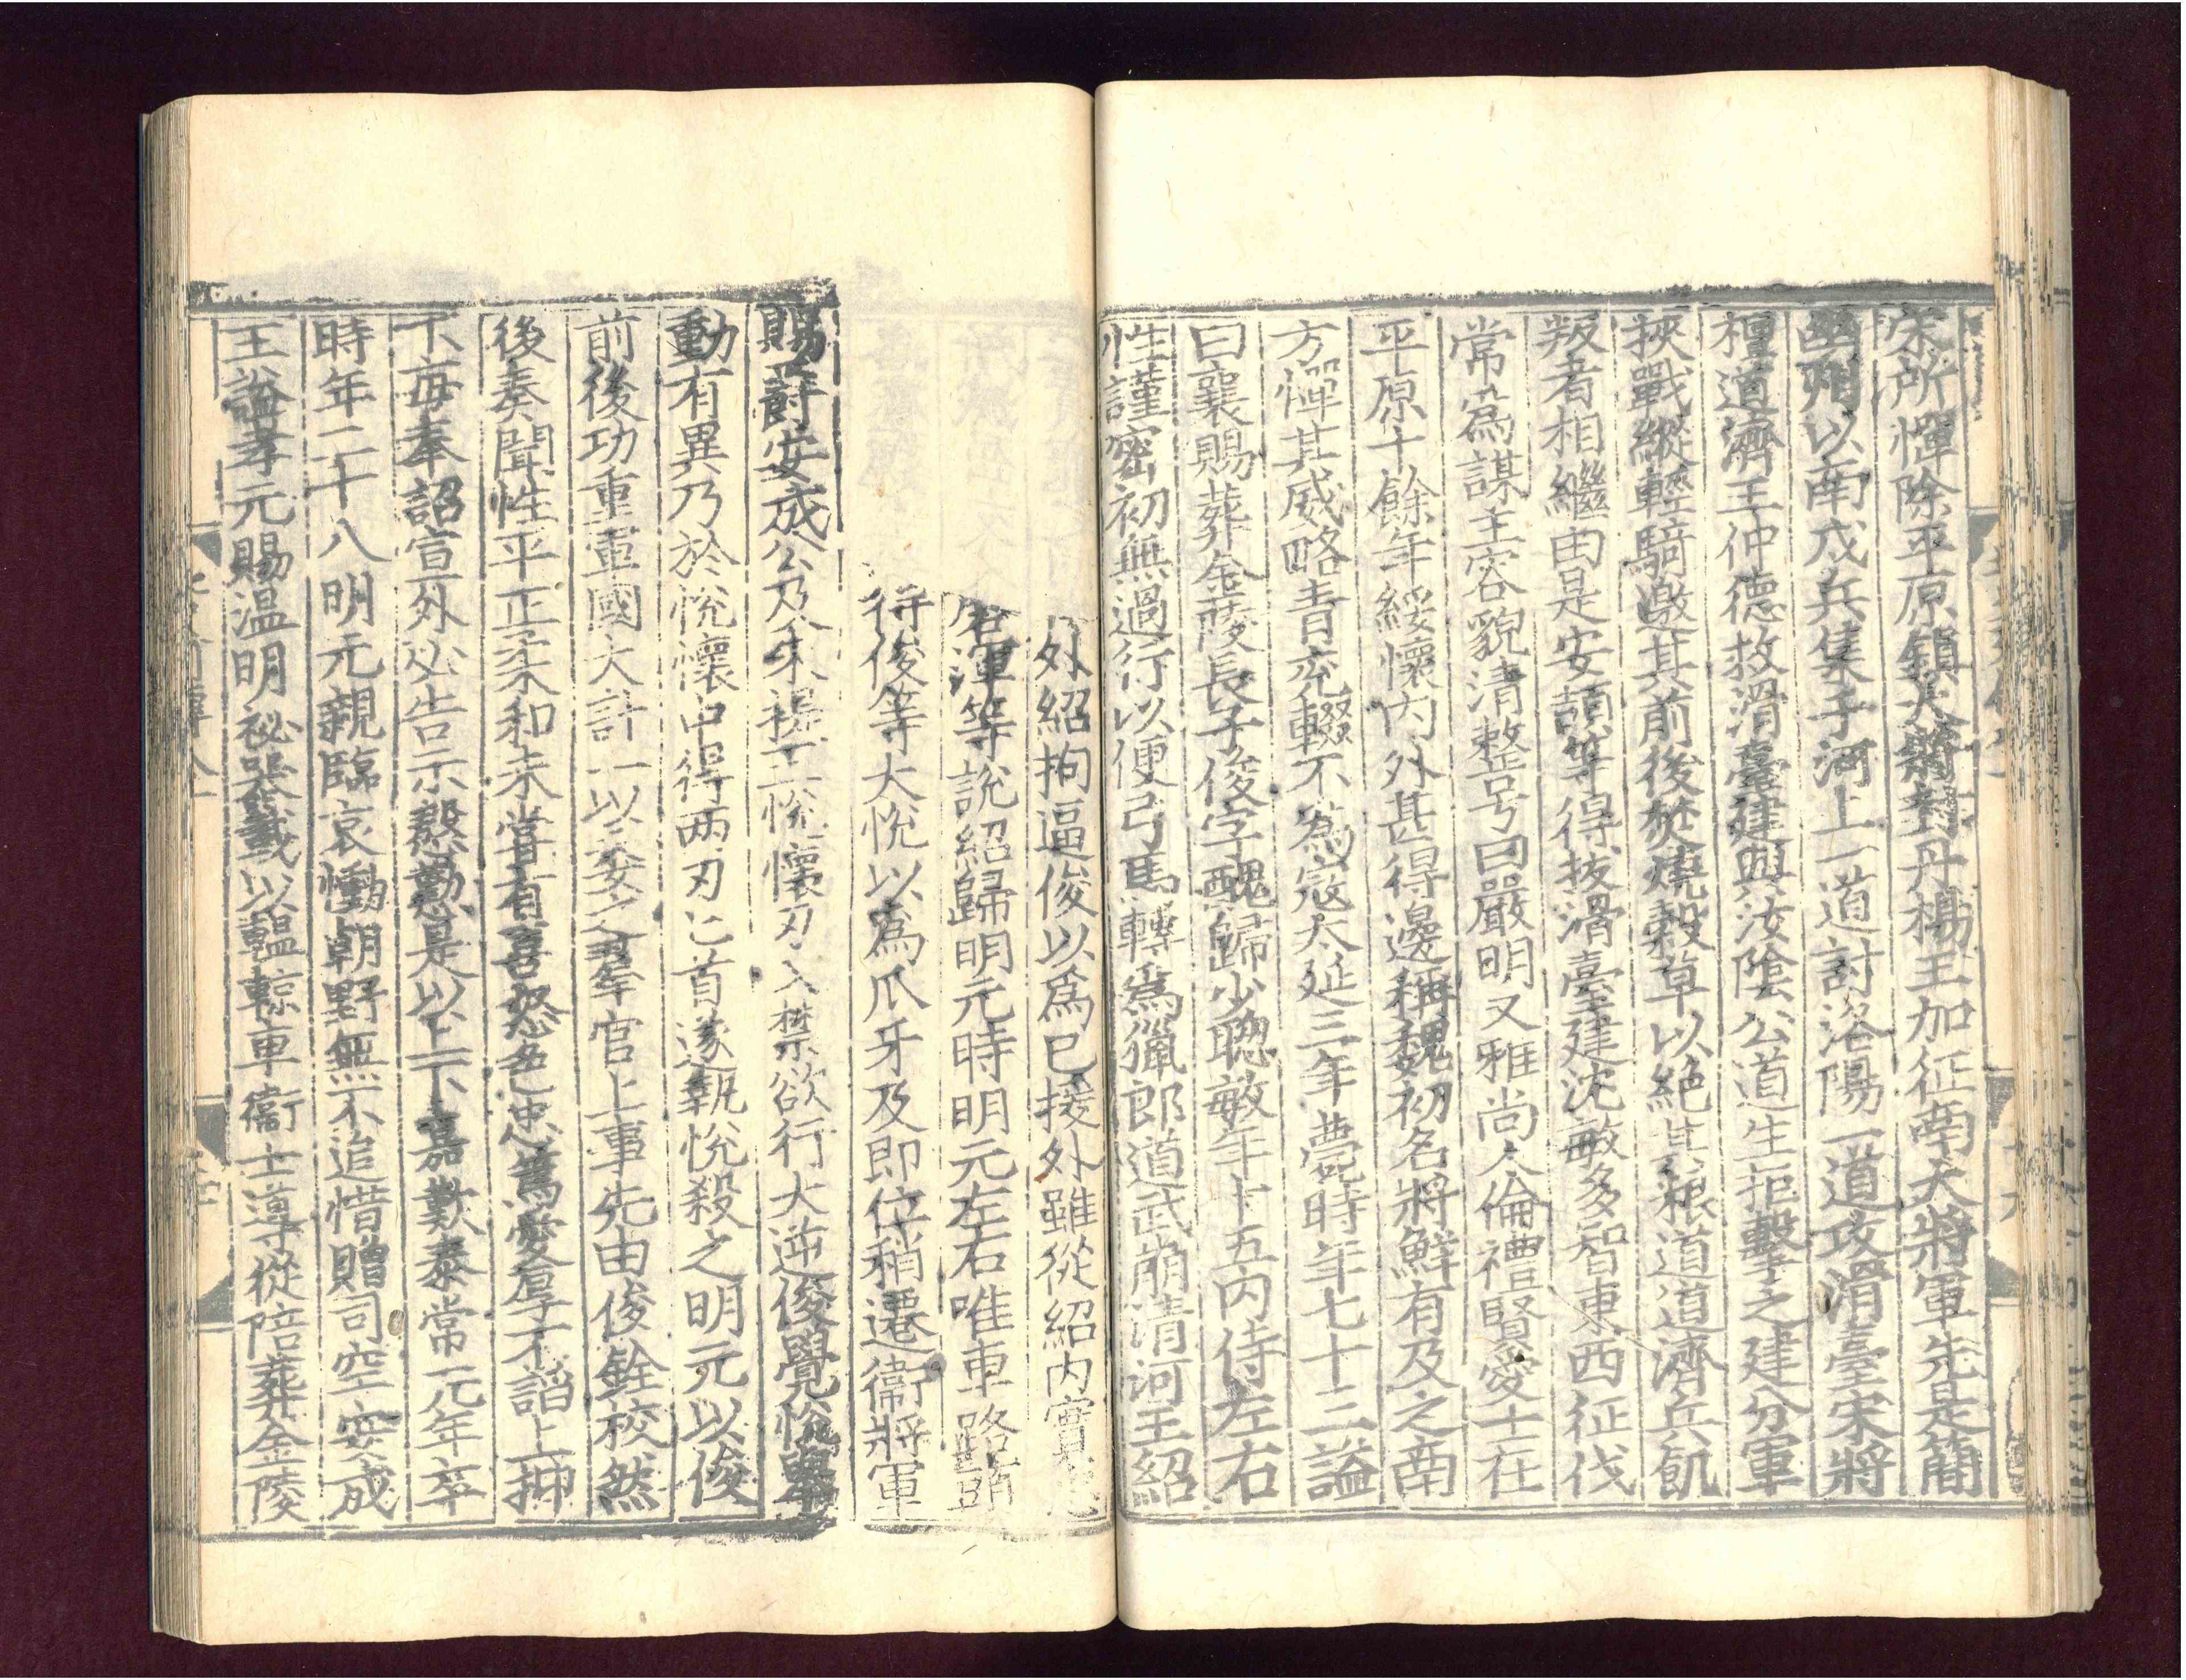 宋所憚除平原鎮大將封丹楊王加征南大將軍先是簡
幽州以南戍兵集于河上一道討洛陽一道攻滑臺宋將
檀道濟王仲德救滑臺建與汝陰公道生拒擊之建分軍
挾戰縱輕騎邀其前後焚燒穀草以絕其粮道道濟兵飢
叛者相繼由是安頡等得拔滑臺建沈敏多智東西征伐
常為謀主容貌清整号曰嚴明又雅尚人倫禮賢愛士在
平原十餘年綏懷內外甚得邊稱魏初名將鮮有及之南
方憚其威略青兖輟不為寇太延三年薨時年七十三謚
曰襄賜葬金陵長子俊字醜歸少聰敏年十五內侍左右
性謹密初無過行以便弓馬轉爲獵郎道武崩清河王紹
外紹拘逼俊以爲已援外雖從紹内實
渾等說紹歸明元時明元左右唯車路頭
得俊等大悅以爲爪牙及即位稍遷衞將軍
賜爵安成公及朱提王悅懷刃入禁欲行大逆俊覺悅舉
動有異乃於悅懷中得两刃匕首遂執悅殺之明元以俊
前後功重軍國大計一以委之羣官上事先由俊銓校然
後奏聞性平正柔和未嘗有喜怒色忠篤愛厚不諂上抑
下每奉詔宣外必告示慇懃是以上下嘉歎泰常元年卒
時年二十八明元親臨哀慟朝野無不追惜贈司空安成
王謚孝元賜温明祕器載以轀輬車衞士導從陪葬金陵